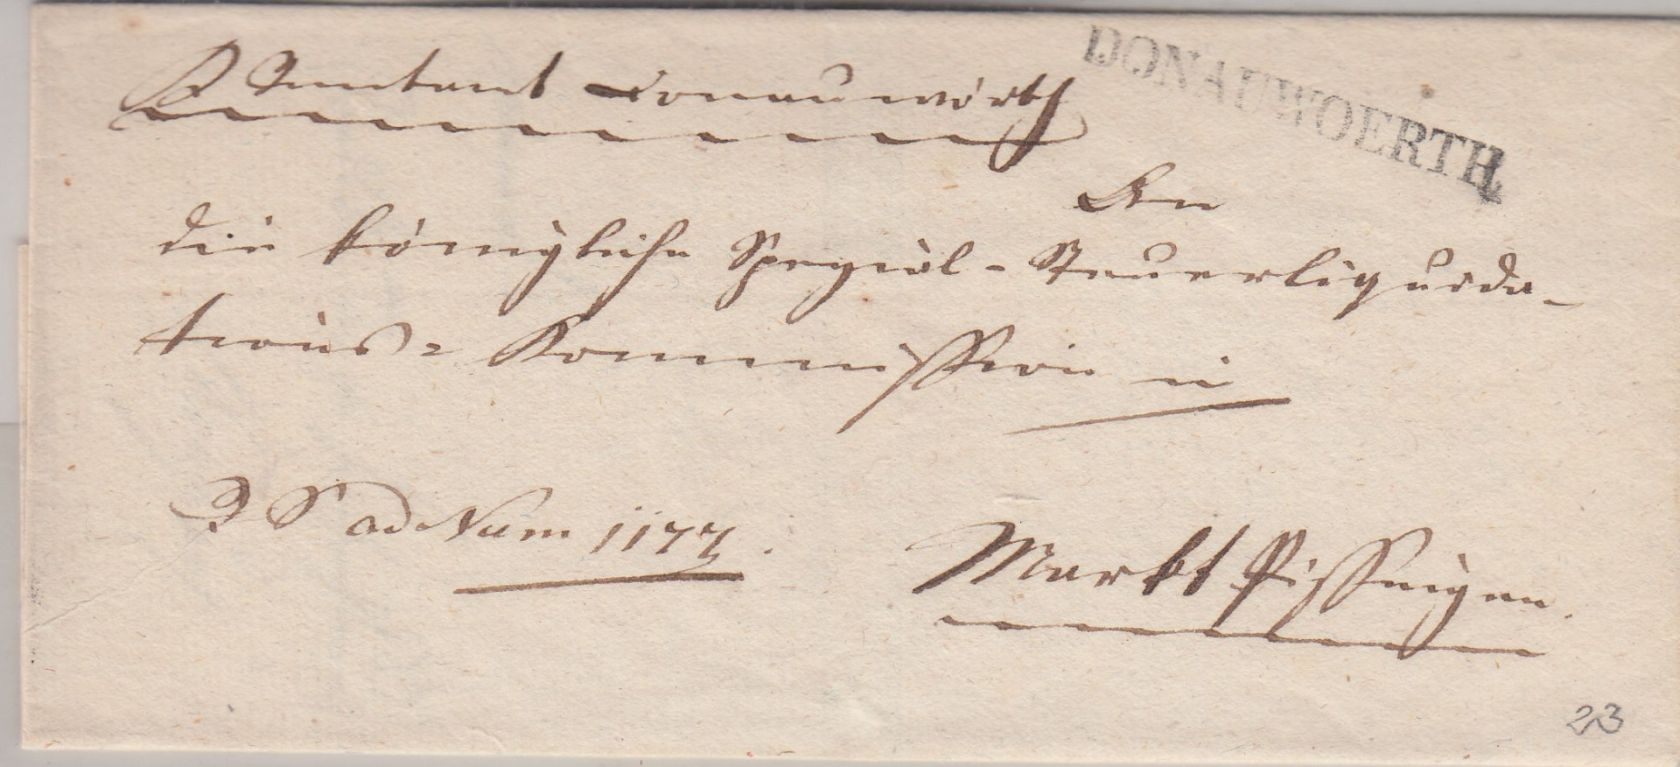 Rentamt Donauwörth
DONAUWOERTH
An
die königliche Spezial-Steuerliquida-
tions-Kommission in
R S ad Num 1177.
Markt Bissingen.
23